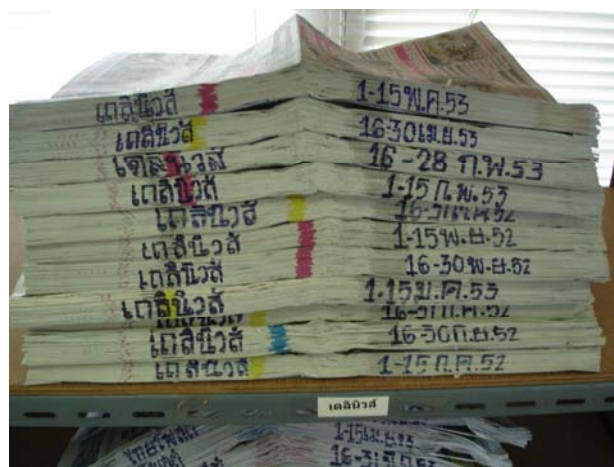 เดลินิวส์ 1-15 พ.ค.53
เดลินิวส์ 16-30 เม.ย.53
เดลินิวส์ 16-28 ก.พ.53
เดลินิวส์ 1-15 ก.พ.53
เดลินิวส์
เดลินิวส์ 1-15 พ.ย.52
เดลินิวส์ 16-30 พ.ย.52
เดลินิวส์ 1-15 ม.ค.53
เดลินิวส์
เดลินิวส์ 16-30 ก.ย.52
เดลินิวส์ 1-15 ก.ค.52
เดลินิวส์